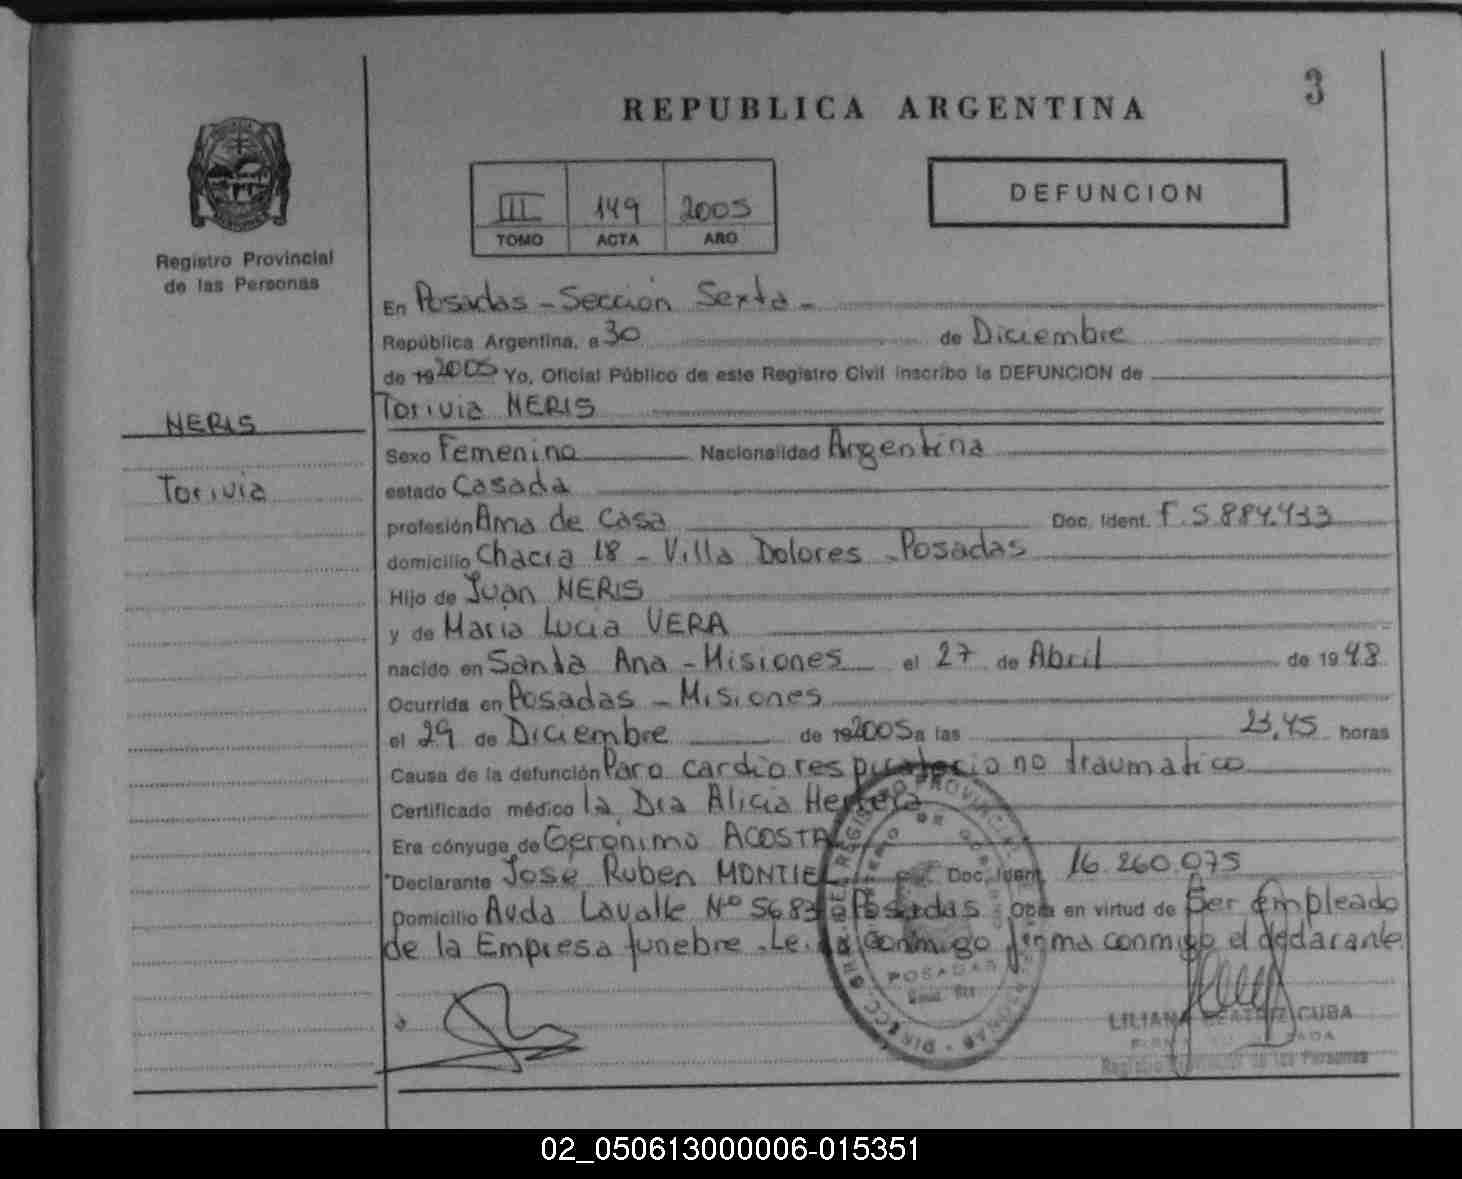 3
REPUBLICA ARGENTINA
III 149 2005
TOMO ACTA AÑO
DEFUNCION
Registro Provincial
de las Personas
NERIS
Torivia
En Posadas - Sección Sexta -
República Argentina, a 30 de Diciembre
de 19 2005 Yo, Oficial Público de este Registro Civil inscribo la DEFUNCION de
Torivia NERIS
Sexo Femenino Nacionalidad Argentina
estado Casada
profesión Ama de Casa Doc. Ident. F. 5.884.433
domicilio Chacra 18 - Villa Dolores - Posadas
Hijo de Juan NERIS
y de Maria Lucia VERA
nacido en Santa Ana - Misiones el 27 de Abril de 19 48
Ocurrida en Posadas - Misiones
el 29 de Diciembre de 19 2005 a las 23,45 horas
Causa de la defunción Paro cardiorespiratorio no traumatico
Certificado médico la Dra Alicia Herrera
Era cónyuge de Gerónimo ACOSTA
Declarante Jose Ruben MONTIEL Doc. Ident. 16.260.075
Domicilio Avda Lavalle Nº 5683 Posadas Obra en virtud de Ser empleado
de la Empresa funebre. Leida conmigo firma conmigo el declarante
POSADAS
LILIANA BEATRIZ CUBA
Registro Provincial de las Personas
02_050613000006-015351